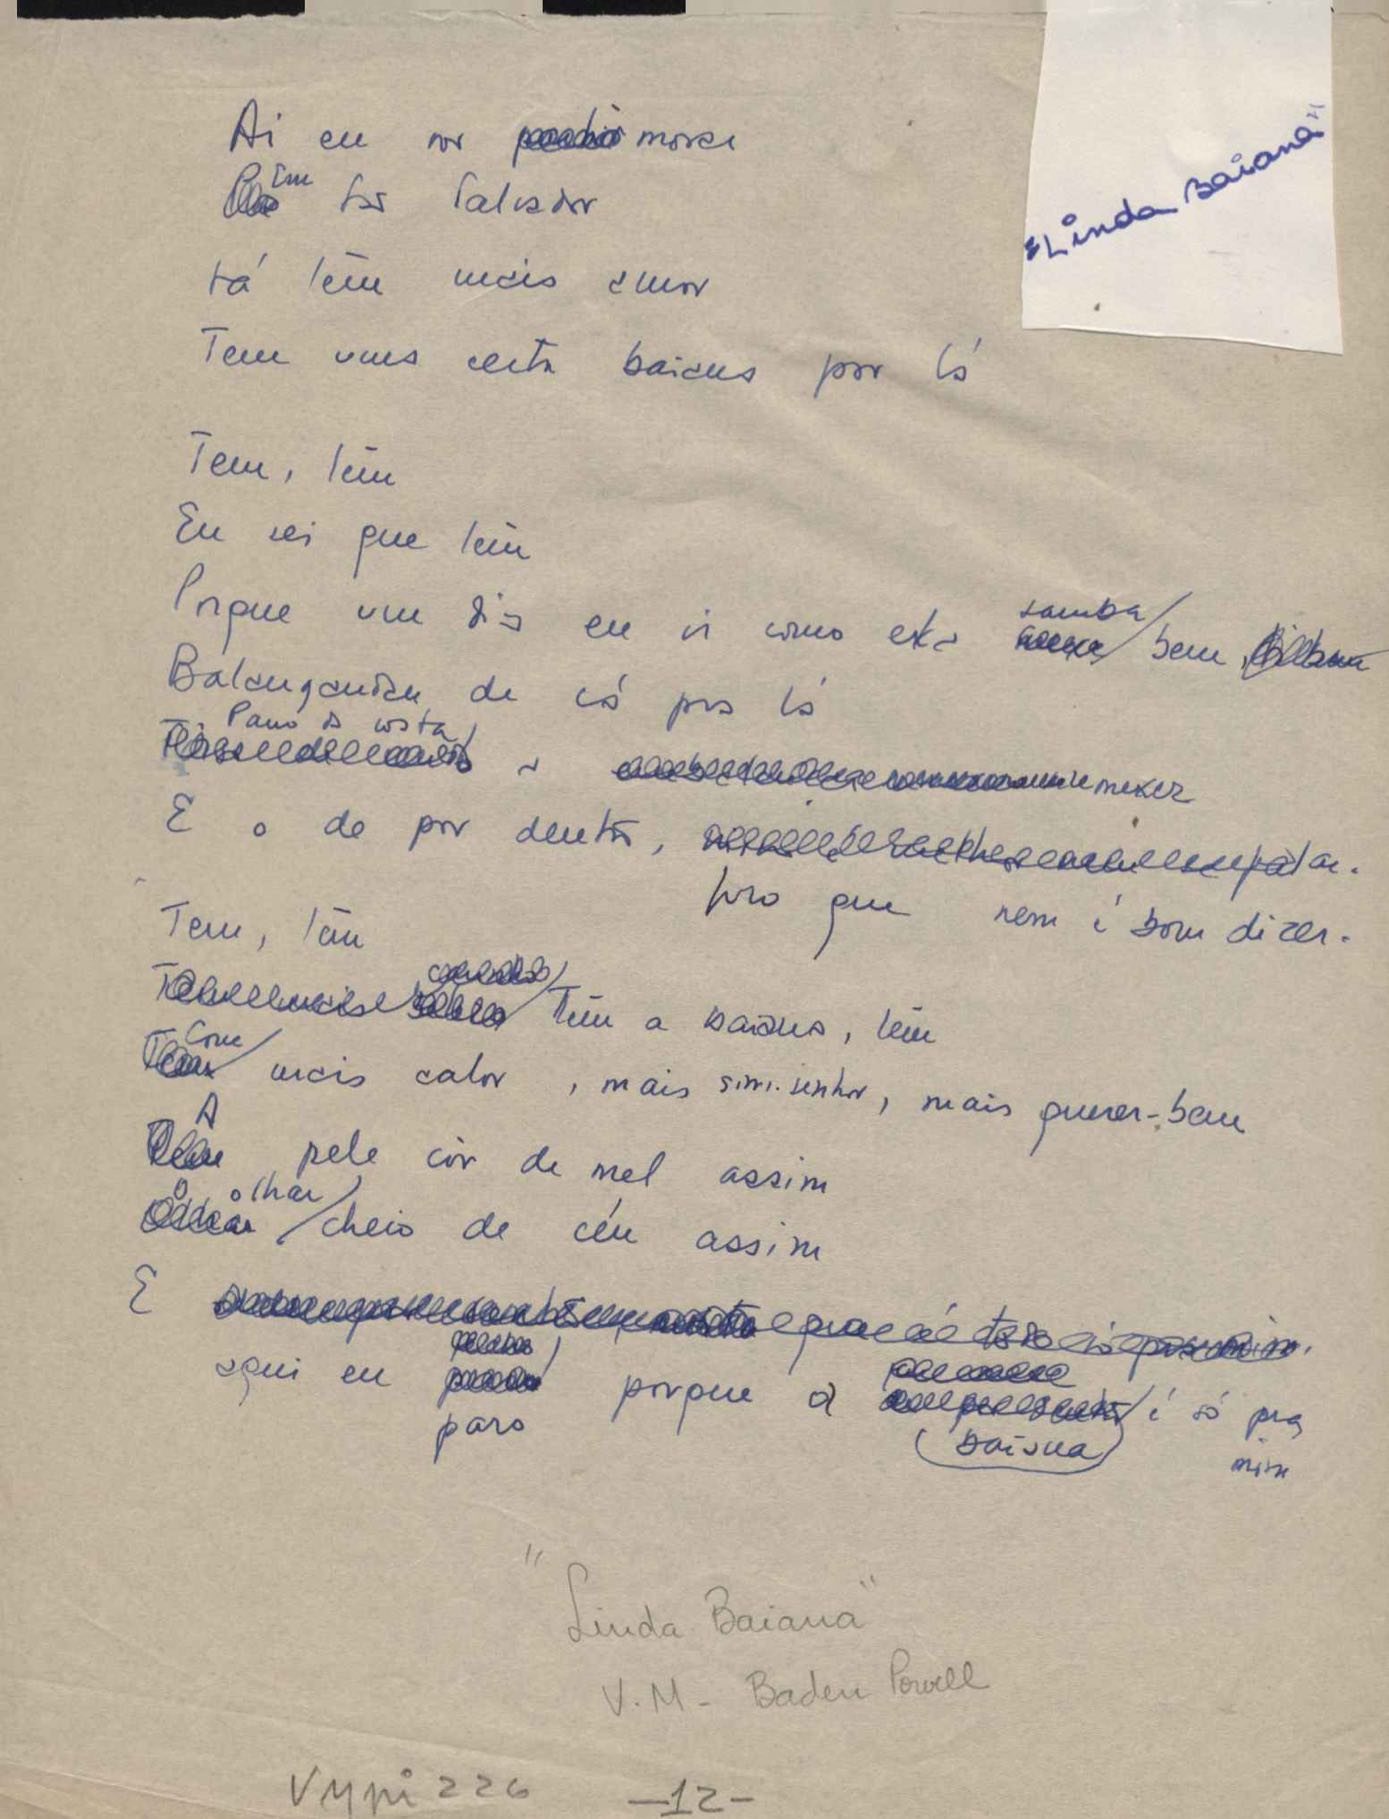 "Linda Baiana"
Ai eu vou morar
Em São Salvador
Lá tem mais amor
Tem uma certa baiana por lá
Tem, tem
Eu sei que tem
Porque um dia eu vi como ela samba bem
Balangandan de cá pra lá
Pano da costa a mexer
E o de por dentro,
pro que nem é bom dizer.
Tem, tem
Tem a baiana, tem
Com mais calor, mais sim-senhor, mais querer-bem
A pele côr de mel assim
O olhar cheio de céu assim
E
aqui eu paro porque a baiana é só pra mim
"Linda Baiana"
V.M - Baden Powell
Vypi 226 -12-